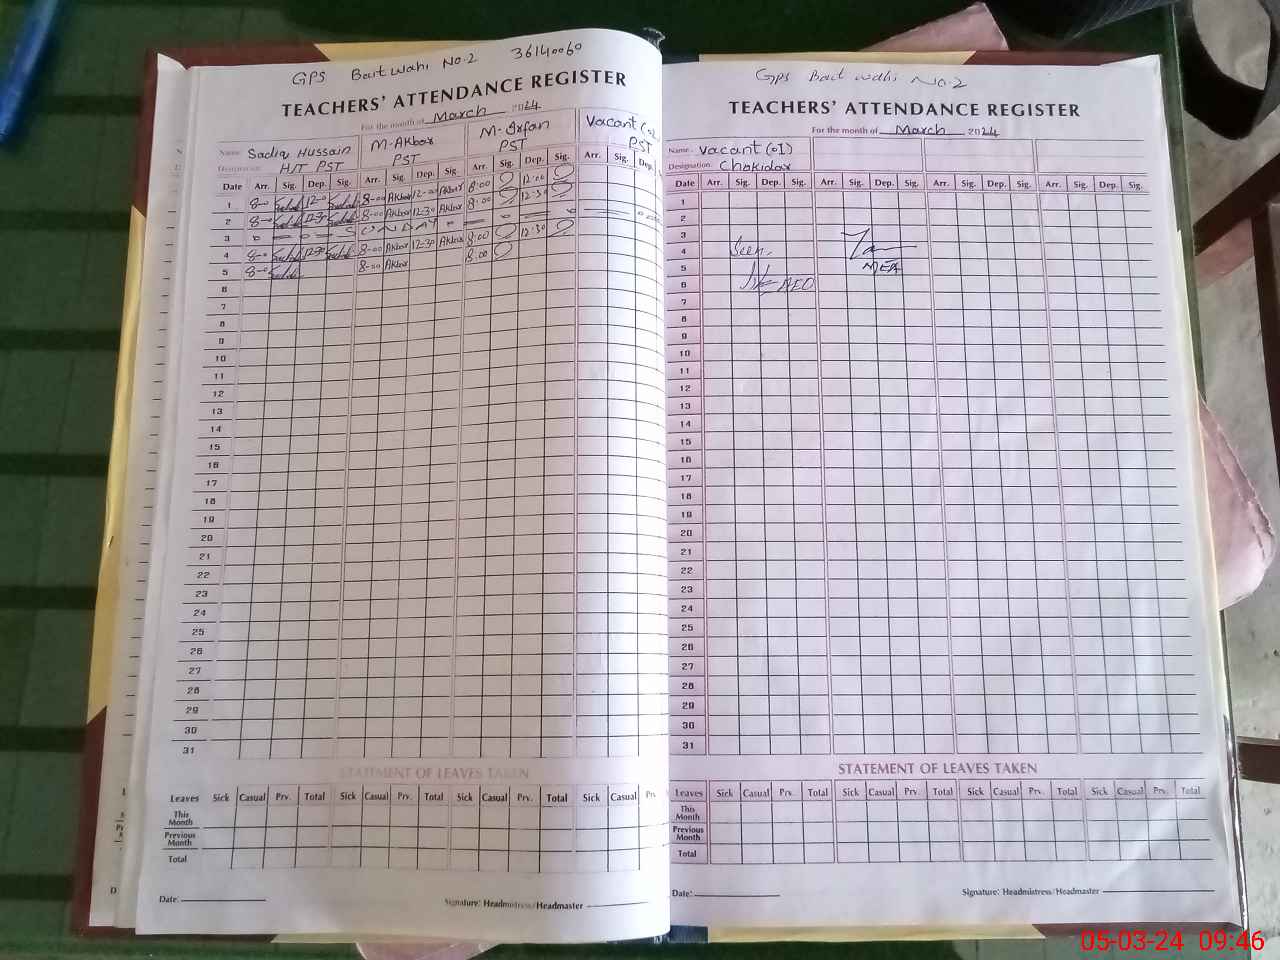 GPS Bait wahi No.2 36140060
TEACHERS' ATTENDANCE REGISTER
For the month of March 2024
Name Sadiq Hussain M-Akbar M-Irfan Vacant
Designation H/T PST PST PST PST
Date Arr. Sig. Dep. Sig. Arr. Sig. Dep. Sig. Arr. Sig. Dep. Sig. Arr. Sig. Dep.
1 8-00 12-00 8-00 Akbar 12-00 Akbar 8:00 12:00
2 8-00 12-30 8-00 Akbar 12-30 Akbar 8:00 12:30
3 S U N D A Y
4 8-00 12-30 8-00 Akbar 12-30 Akbar 8:00 12:30
5 8-00 8-00 Akbar 8:00
6
7
8
9
10
11
12
13
14
15
16
17
18
19
20
21
22
23
24
25
26
27
28
29
30
31
STATEMENT OF LEAVES TAKEN
Leaves Sick Casual Prv. Total Sick Casual Prv. Total Sick Casual Prv. Total Sick Casual
This Month
Previous Month
Total
Date: Signature: Headmistress/Headmaster
GPS Bait wahi No.2
TEACHERS' ATTENDANCE REGISTER
For the month of March 2024
Name Vacant (01)
Designation Chokidar
Date Arr. Sig. Dep. Sig. Arr. Sig. Dep. Sig. Arr. Sig. Dep. Sig. Arr. Sig. Dep. Sig.
1
2
3
4 Seen,
5 MEA
6 AEO
7
8
9
10
11
12
13
14
15
16
17
18
19
20
21
22
23
24
25
26
27
28
29
30
31
STATEMENT OF LEAVES TAKEN
Leaves Sick Casual Prv. Total Sick Casual Prv. Total Sick Casual Prv. Total Sick Casual Prv. Total
This Month
Previous Month
Total
Date: Signature: Headmistress/Headmaster
05-03-24 09:46